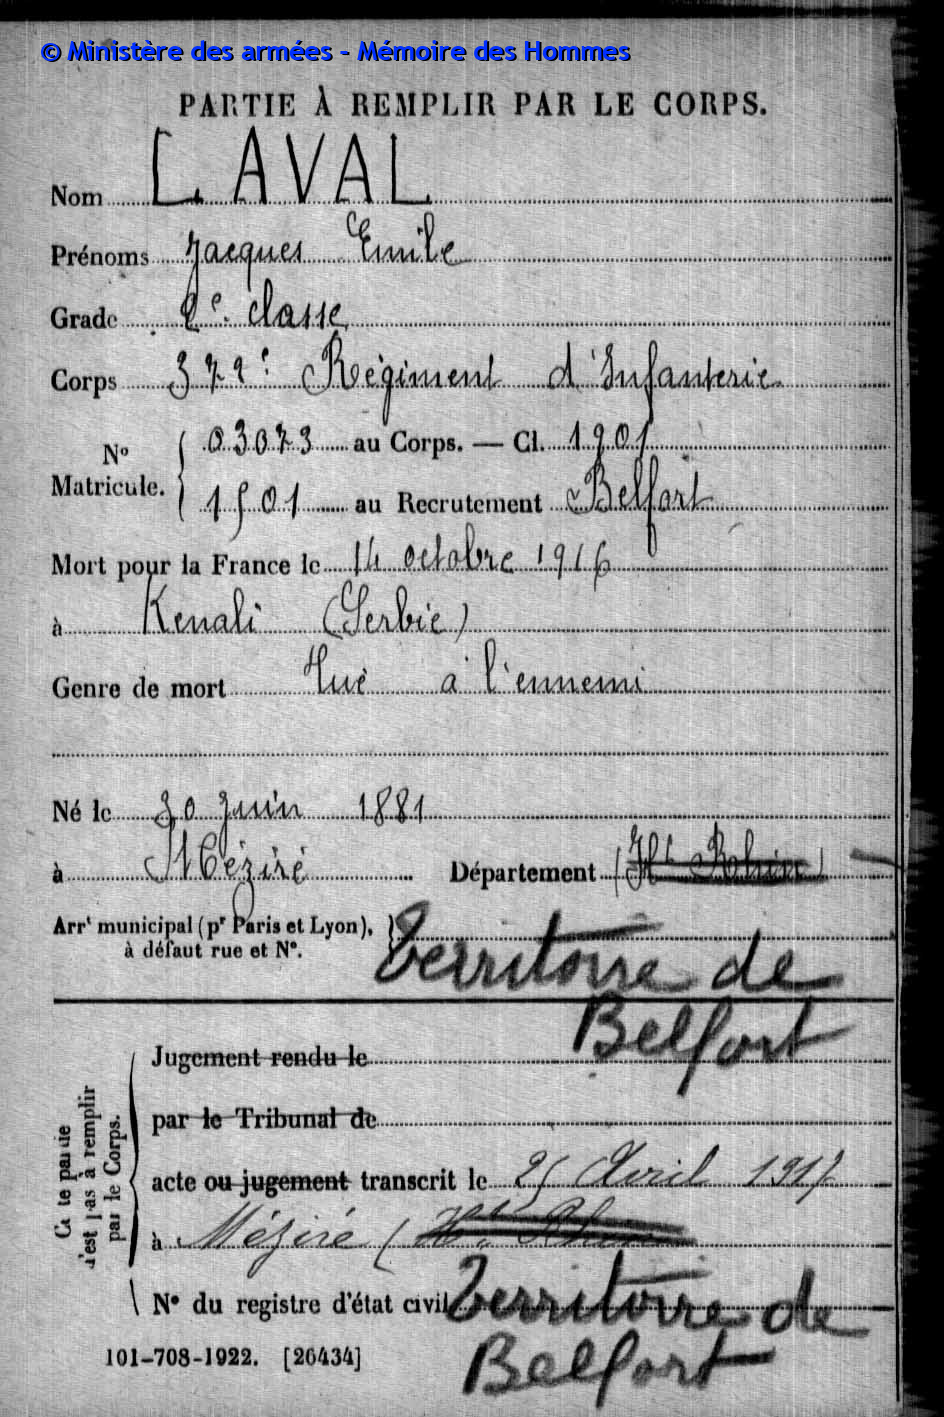 © Ministère des armées - Mémoire des Hommes
PARTIE À REMPLIR PAR LE CORPS.
Nom LAVAL
Prénoms Jacques Emile
Grade 2e. classe
Corps 372e Régiment d'Infanterie
No Matricule. { 03073 au Corps. — Cl. 1901
1501 au Recrutement Belfort
Mort pour la France le 14 octobre 1916
à Kenali (Serbie)
Genre de mort Tué à l'ennemi
Né le 30 Juin 1881
à Méziré Département (Ht Rhin)
Arrt municipal (pr Paris et Lyon),
à défaut rue et No. } Territoire de
Belfort
Cette partie
n'est pas à remplir
par le Corps.
Jugement rendu le
par le Tribunal de
acte ou jugement transcrit le 25 Avril 1917
à Méziré (Ht Rhin
No du registre d'état civil Territoire de
Belfort
101-708-1922. [26434]